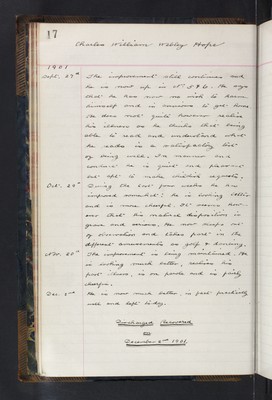 17
Charles William Webley Hope
1901
Sept. 27th The improvement still continues and
he is now up in No 5 & 6. He says
that he has now no wish to harm
himself and is anxious to get home
He does not quite however realise
his illness as he thinks that being
able to read and understand what
he reads is a satisfactory test
of being well. In manner and
conduct he is quiet and pleasant
but apt to make childish requests.
Oct. During the last four weeks he has
improved somewhat; he is looking better
and is more cheerful. It seems how-
ever that his natural disposition is
grave and serious. He now sleeps out
of observation and takes part in the
different amusements as golf & dancing.
Nov. The improvement is being maintained. He
is looking much better, realises his
past illness, is on parole and is fairly
cheerful.
Dec. 2nd He is now much better, in fact practically
well and left to-day.
Discharged Recovered
on
December 2nd 1901.